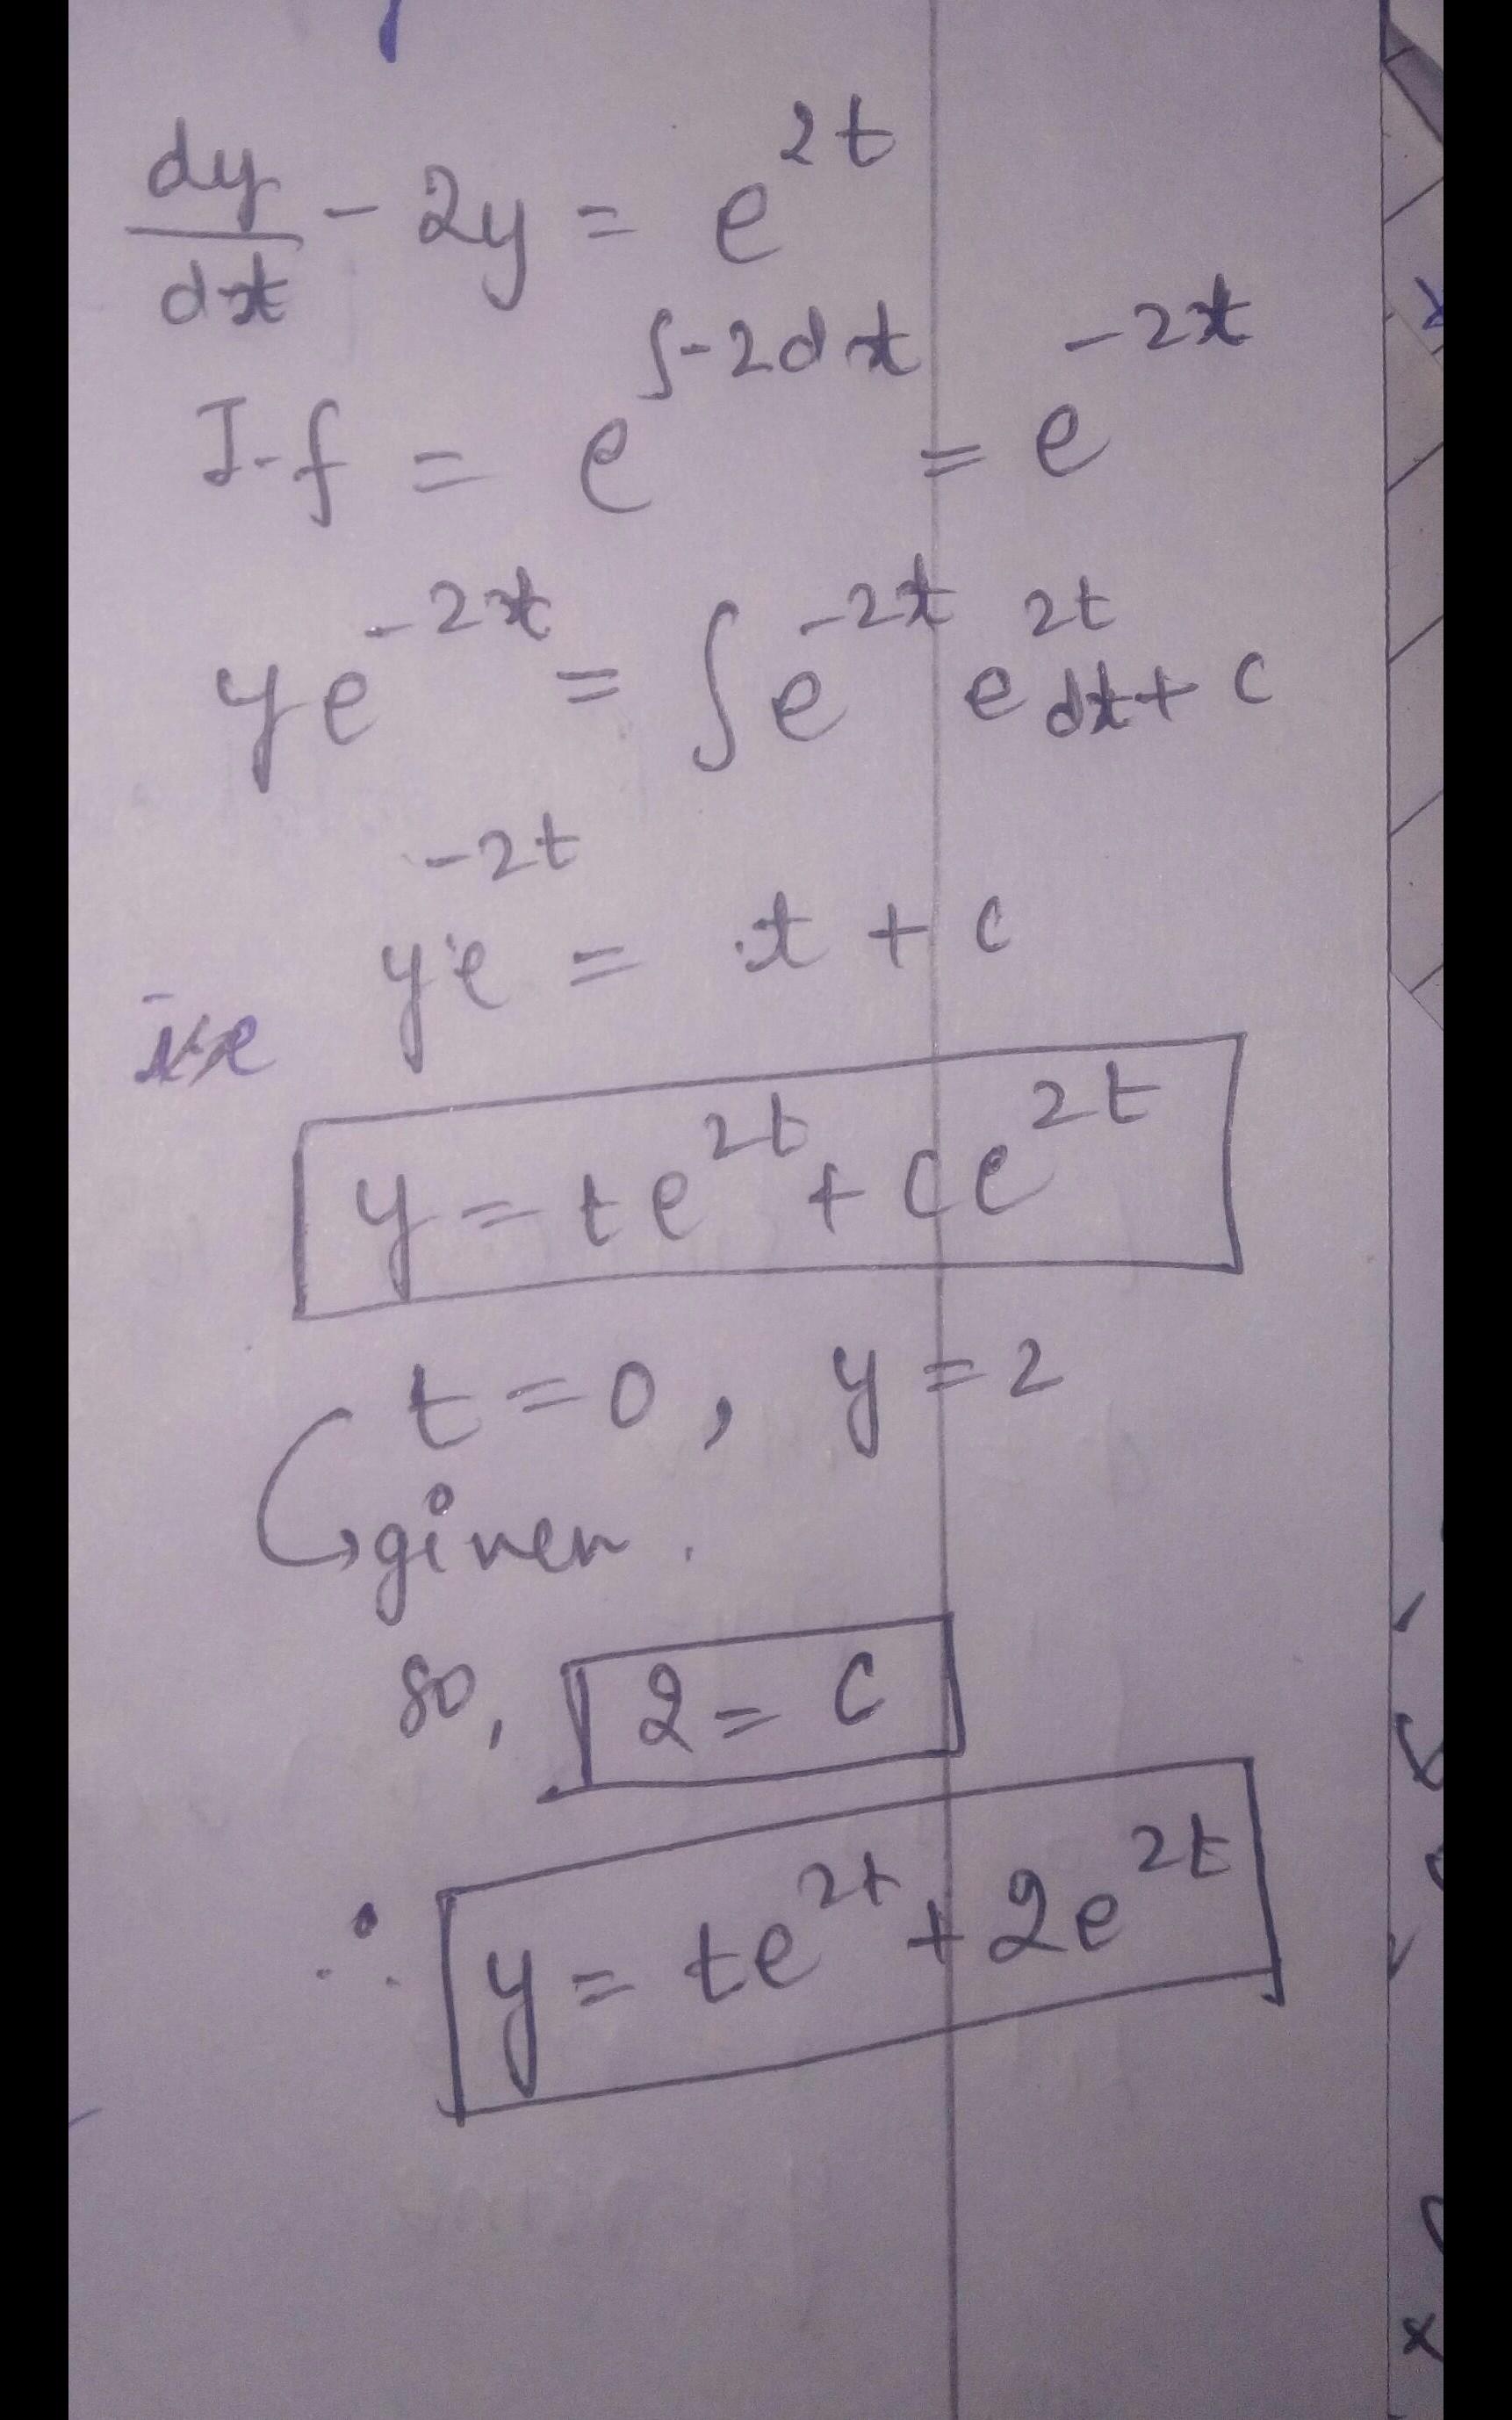 dy/dt - 2y = e^2t
I.f = e^∫-2dt = e^-2t
ye^-2t = ∫e^-2t e^2t dt + c
ye^-2t = t + c
i.e
y = te^2t + ce^2t
t = 0, y = 2
given.
so, 2 = c
∴ y = te^2t + 2e^2t